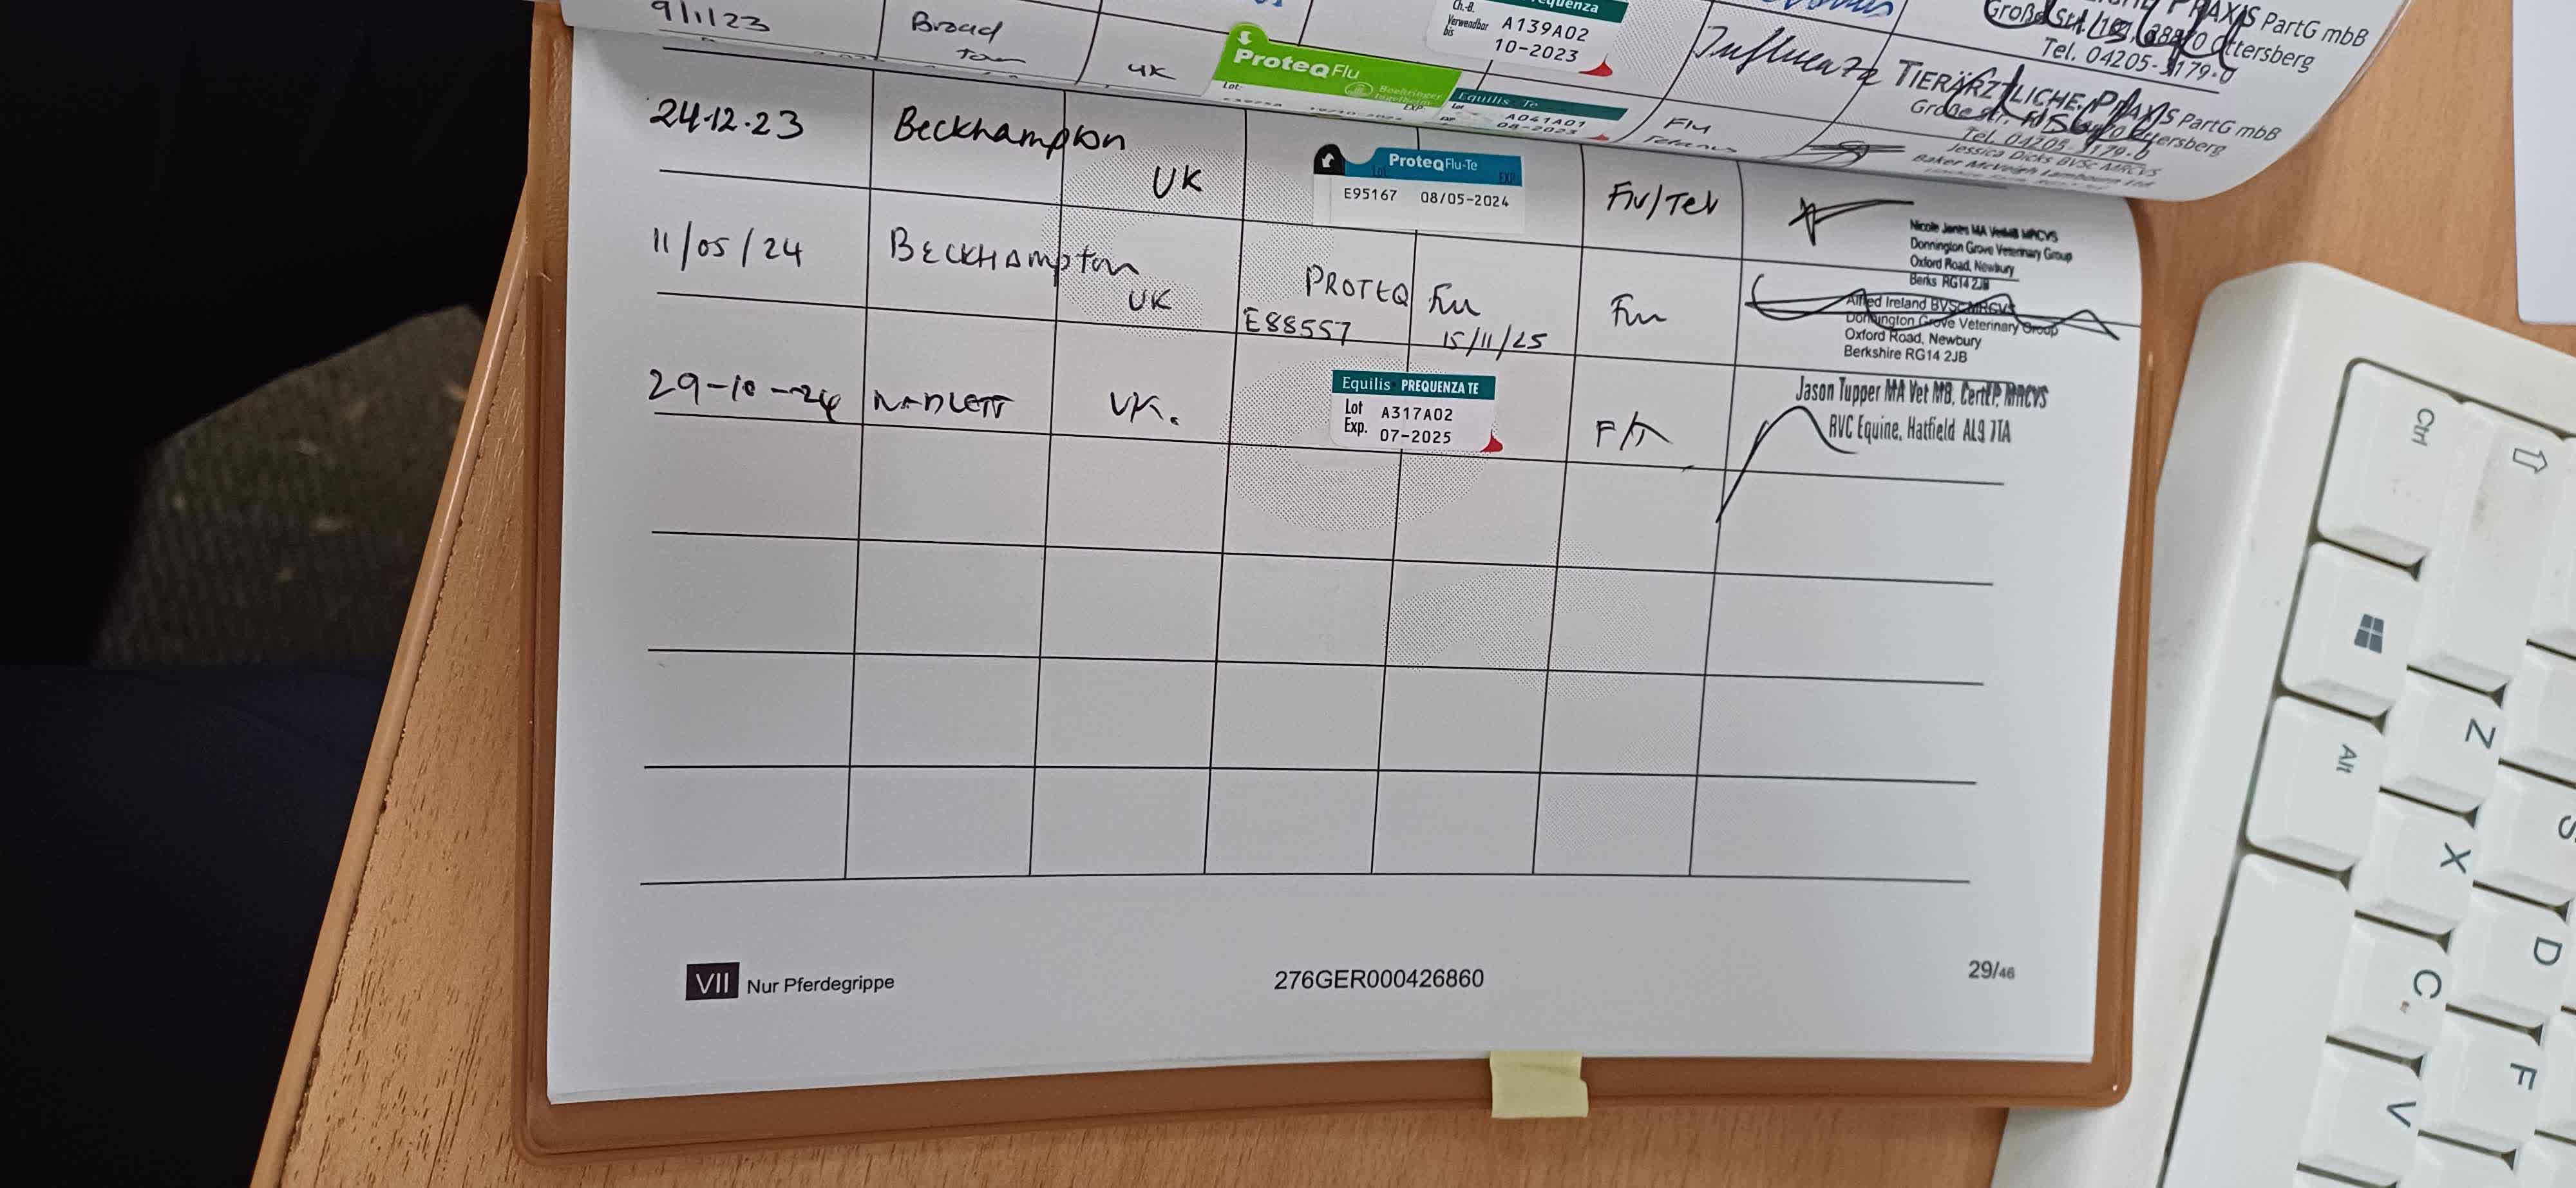 9/1/23 Broad Town UK
ProteqFlu
Boehringer Ingelheim
Lot: EXP.
Equilis Te
Lot A041A01
08-2023
Flu
Tetanus
Jessica Dicks BVSc MRCVS
Baker McVeigh Lambourn Ltd
Ch.-B. A139A02
Verwendbar bis 10-2023
Influenza
PRAXIS PartG mbB
Große Str. Ottersberg
Tel. 04205-3179-0
TIERÄRZTLICHE PRAXIS PartG mbB
Große Str. Ottersberg
Tel. 04205-3179-0
24.12.23 Beckhampton UK
ProteqFlu-Te
LOT EXP
E95167 08/05-2024
Flu/Tet
Nicole Jones MA VetMB MRCVS
Donnington Grove Veterinary Group
Oxford Road, Newbury
Berks RG14 2JB
11/05/24 BECKHAMPton UK
PROTEQ Flu
E88557 15/11/25
Flu
Alfred Ireland BVSc MRCVS
Donnington Grove Veterinary Group
Oxford Road, Newbury
Berkshire RG14 2JB
29-10-24 UK.
Equilis PREQUENZA TE
Lot A317A02
Exp. 07-2025
F/T
Jason Tupper MA Vet MB, CertEP, MRCVS
RVC Equine, Hatfield AL9 7TA
VII Nur Pferdegrippe
276GER000426860
29/46
Ctrl
Alt
Z
X
C
V
S
D
F